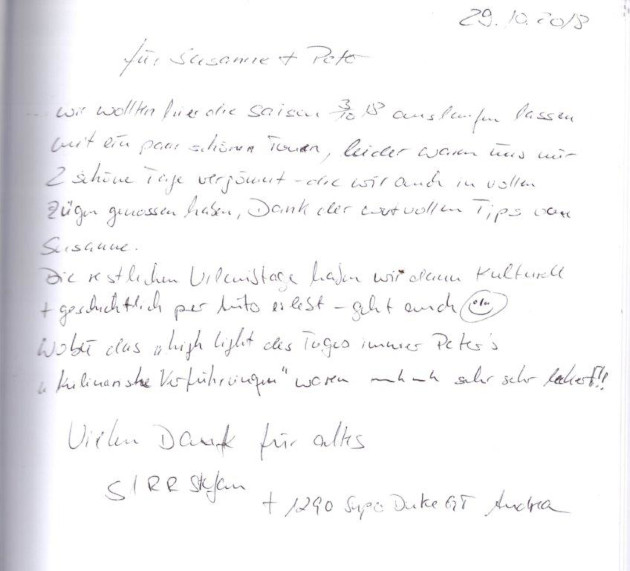 29.10.2018
für Susanne + Peter
wir wollten hier die Saison 18 auslaufen lassen
mit ein paar schönen Touren, leider waren uns nur
2 schöne Tage vergönnt - die wir auch in vollen
Zügen genossen haben, Dank der wertvollen Tips von
Susanne.
Die restlichen Urlaubstage haben wir dann Kulturell
+ geschichtlich per Auto erlebt - geht auch
Wobei das "high light des Tages immer Peter's
"Kulinarische Verführungen" waren sehr sehr lecker!!
Vielen Dank für alles
S1RR Stefan
+ 1290 Super Duke GT Andrea